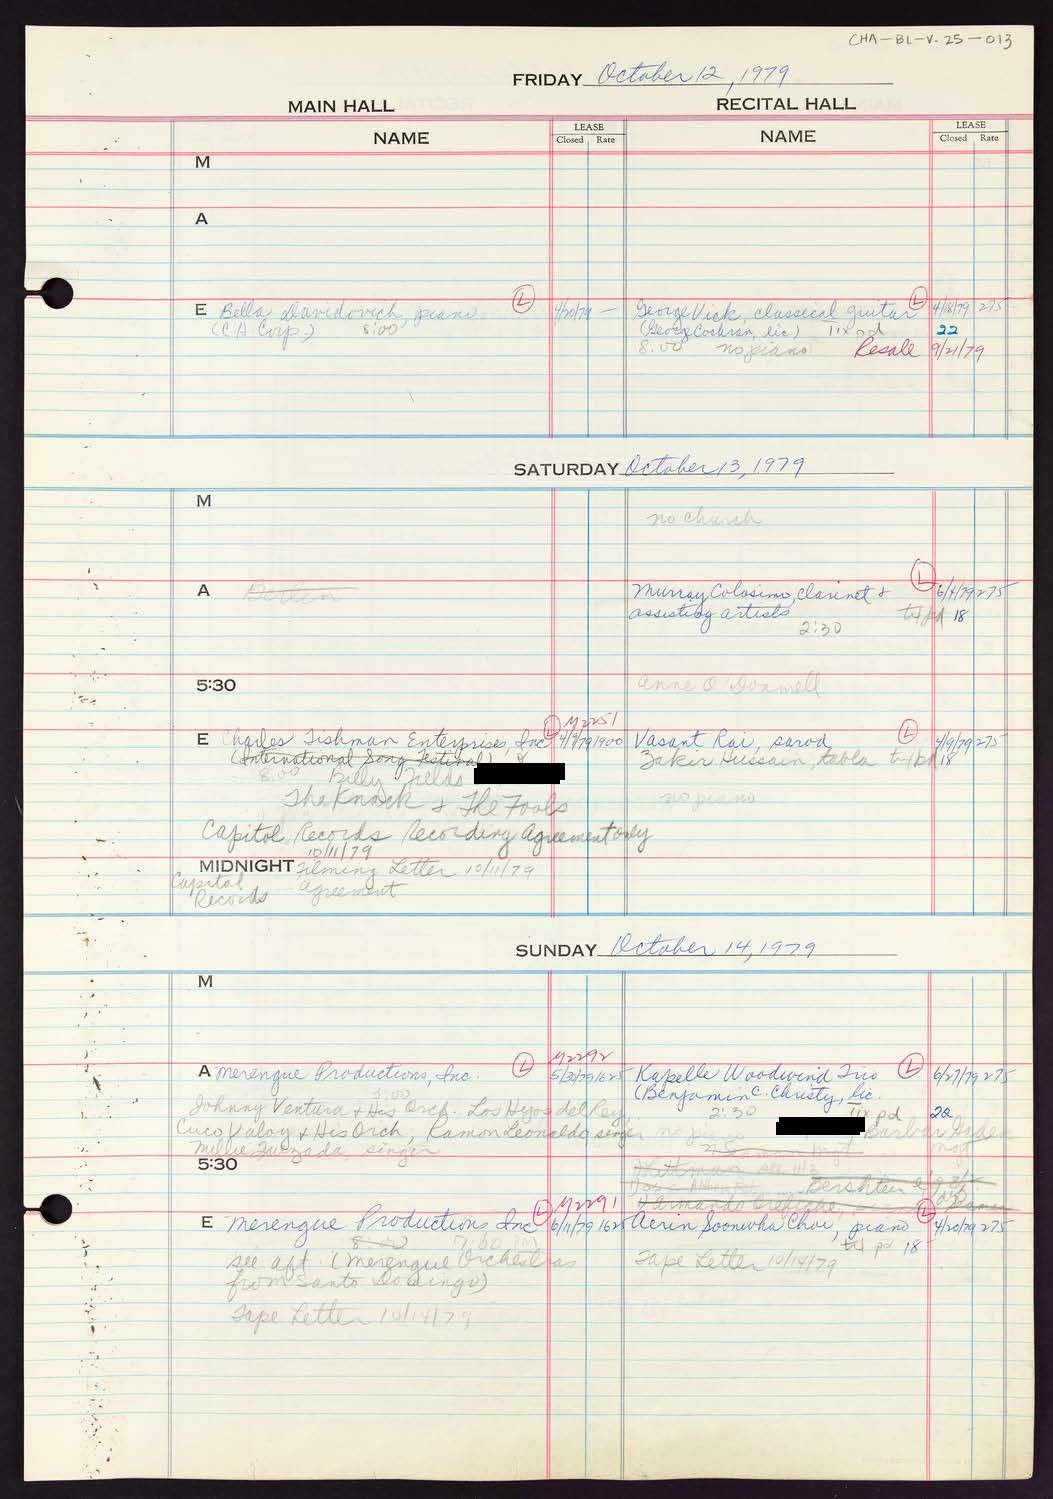 CHA-BL-V.25-013
FRIDAY October 12, 1979
MAIN HALL RECITAL HALL
NAME LEASE Closed Rate NAME LEASE Closed Rate
M
A
E Bella Davidovich, piano L 4/20/79 — George Vick, classical guitar L 4/18/79 275
(C.A. Corp.) 8:00 (George Cochran, lic) tix pd 22
8:00 no piano Resale 9/21/79
SATURDAY October 13, 1979
M
no church
A Murray Colosimo, clarinet & L 6/4/79 275
assisting artists txt pd 18
2:30
5:30 Anne O'Donnell
M2251
E Charles Fishman Enterprises, Inc L 4/9/79 1900 Vasant Rai, sarod L 4/9/79 275
(International Song Festival) & Zakir Hussain, tabla txt pd 18
8:00 Billy Fields
The Knack & The Fools no piano
Capitol Records Recording Agreement only
10/11/79
MIDNIGHT Filming Letter 10/11/79
Capitol Agreement
Records
SUNDAY October 14, 1979
M
M2292
A Merengue Productions, Inc. L 5/31/79 1625 Kapelle Woodwind Trio L 6/27/79 275
(Benjamin C. Christy, lic.
Johnny Ventura & His Orch. Los Hijos del Rey 2:30 tix pd 22
Cuco Valoy & His Orch, Ramon Leonardo singer no piano
Millie Quezada, singer mgt
5:30 see 11/3
M2291
E Merengue Productions Inc L 6/11/79 1625 Aerin Soonwha Choi, piano L 4/20/79 275
8:00 7:30 PM txt pd 18
see aft. (Merengue Orchestras Tape Letter 10/14/79
from Santo Domingo)
Tape Letter 10/14/79